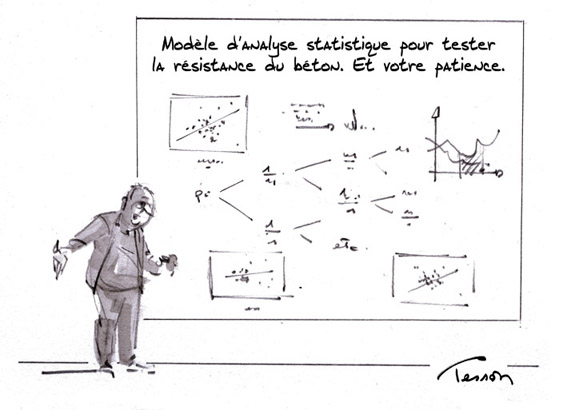 Modèle d'analyse statistique pour tester
la résistance du béton. Et votre patience.
etc.
Tesson